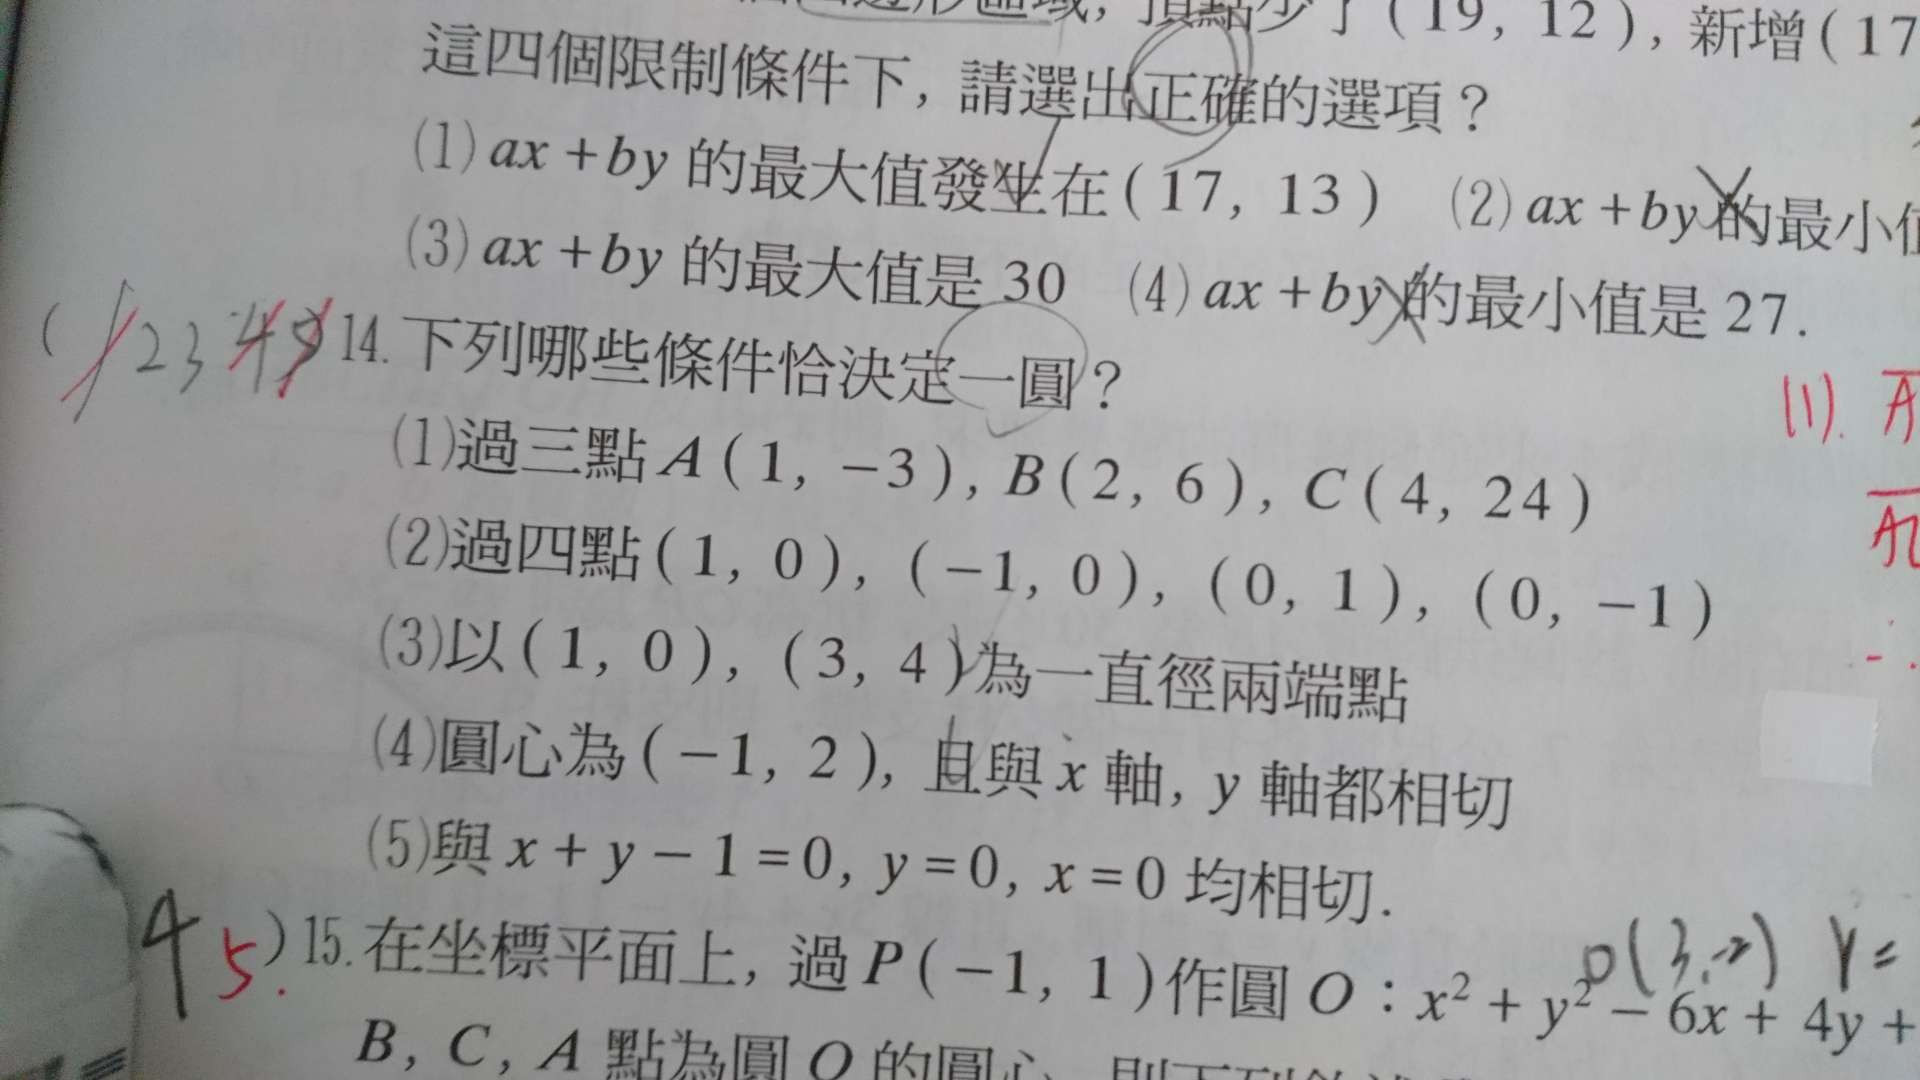 頂點少了(19, 12), 新增(17
這四個限制條件下, 請選出正確的選項?
(1) ax+by 的最大值發生在(17, 13) (2) ax+by 的最小值
(3) ax+by 的最大值是 30 (4) ax+by 的最小值是 27.
( 12345 14. 下列哪些條件恰決定一圓?
(1). A
(1)過三點 A(1, −3), B(2, 6), C(4, 24)
(2)過四點(1, 0), (−1, 0), (0, 1), (0, −1)
(3)以(1, 0), (3, 4)為一直徑兩端點
(4)圓心為(−1, 2), 且與 x 軸, y 軸都相切
(5)與 x+y−1=0, y=0, x=0 均相切.
O(3,-2) y=
45.)15. 在坐標平面上, 過 P(−1, 1)作圓 O:x²+y²−6x+4y+
B, C, A 點為圓 O 的圓心